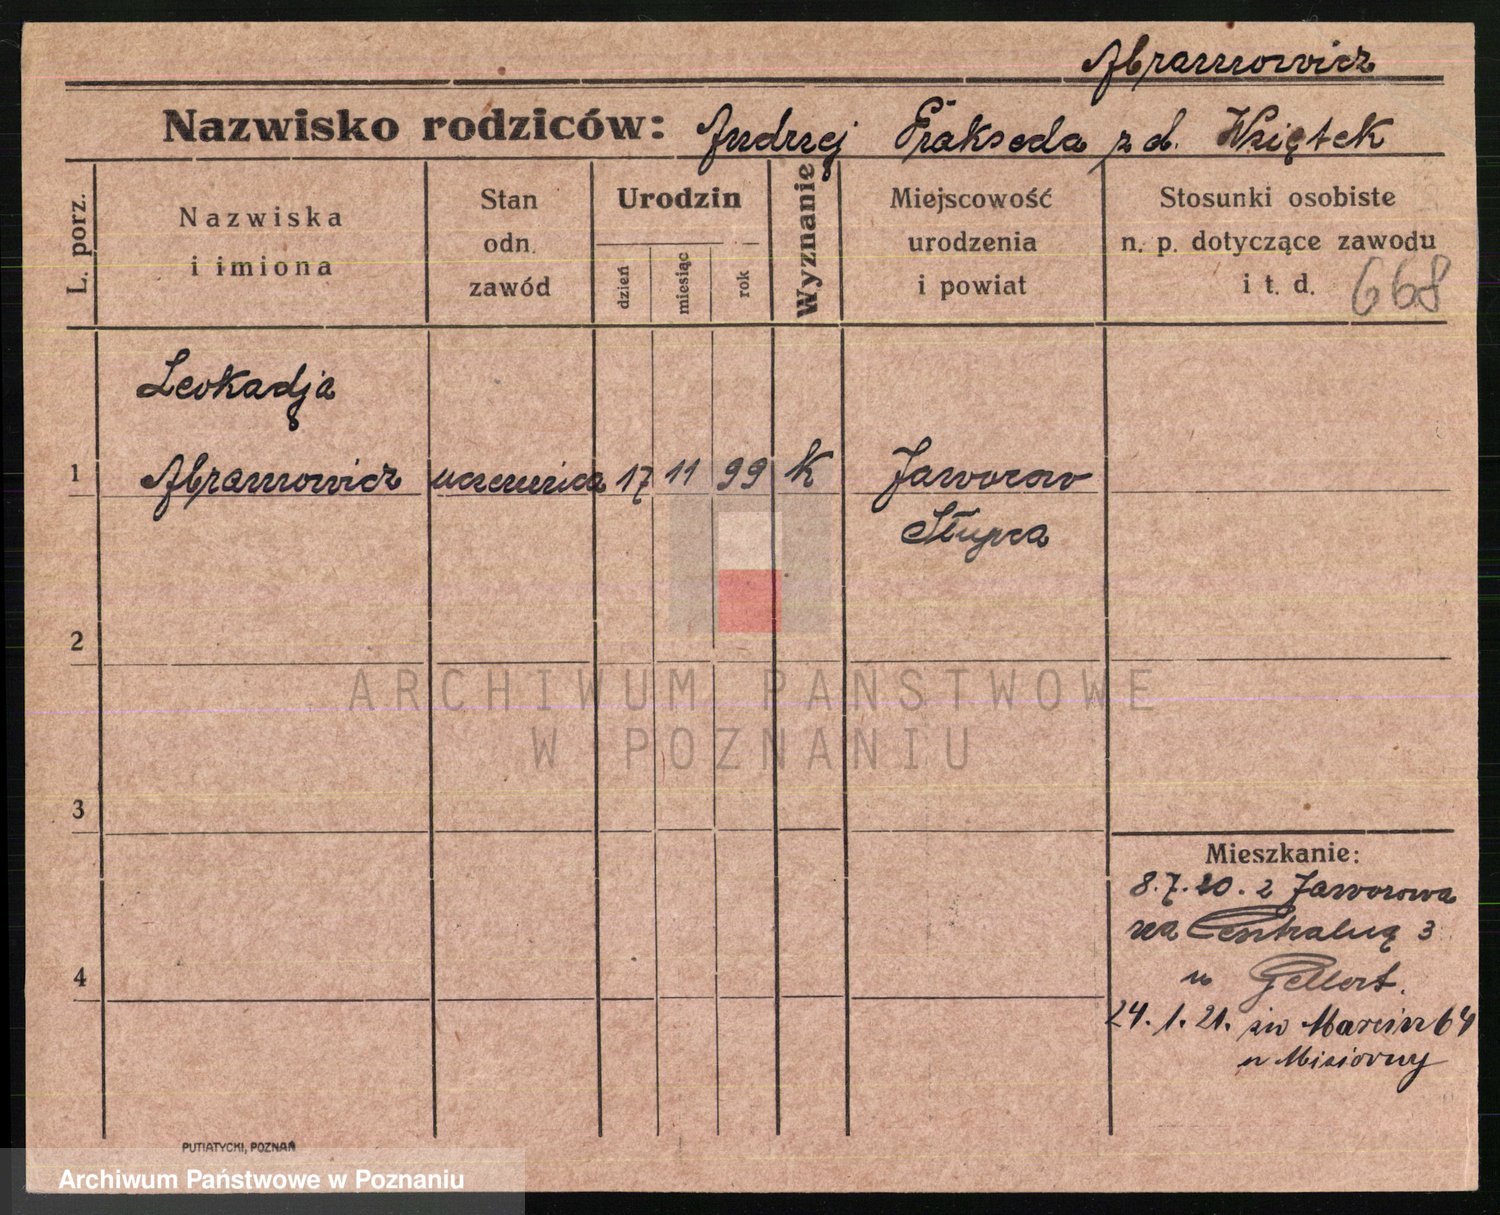 Abramowicz
Nazwisko rodziców: Andrzej Prakseda z d. Wziętek
L. porz.
Nazwiska
i imiona
Stan
odn.
zawód
Urodzin
dzień
miesiąc
rok
Wyznanie
Miejscowość
urodzenia
i powiat
Stosunki osobiste
n. p. dotyczące zawodu
i t. d. 668
Leokadja
1 Abramowicz uczennica 17 11 99 K Jaworowo
Słupca
2
ARCHIWUM PAŃSTWOWE
W POZNANIU
3
Mieszkanie:
8.7.20. z Jaworowa
na Centralną 3
u Gellert.
4
24.1.21. św Marcin 64
u Misiorny
PUTIATYCKI, POZNAŃ
Archiwum Państwowe w Poznaniu